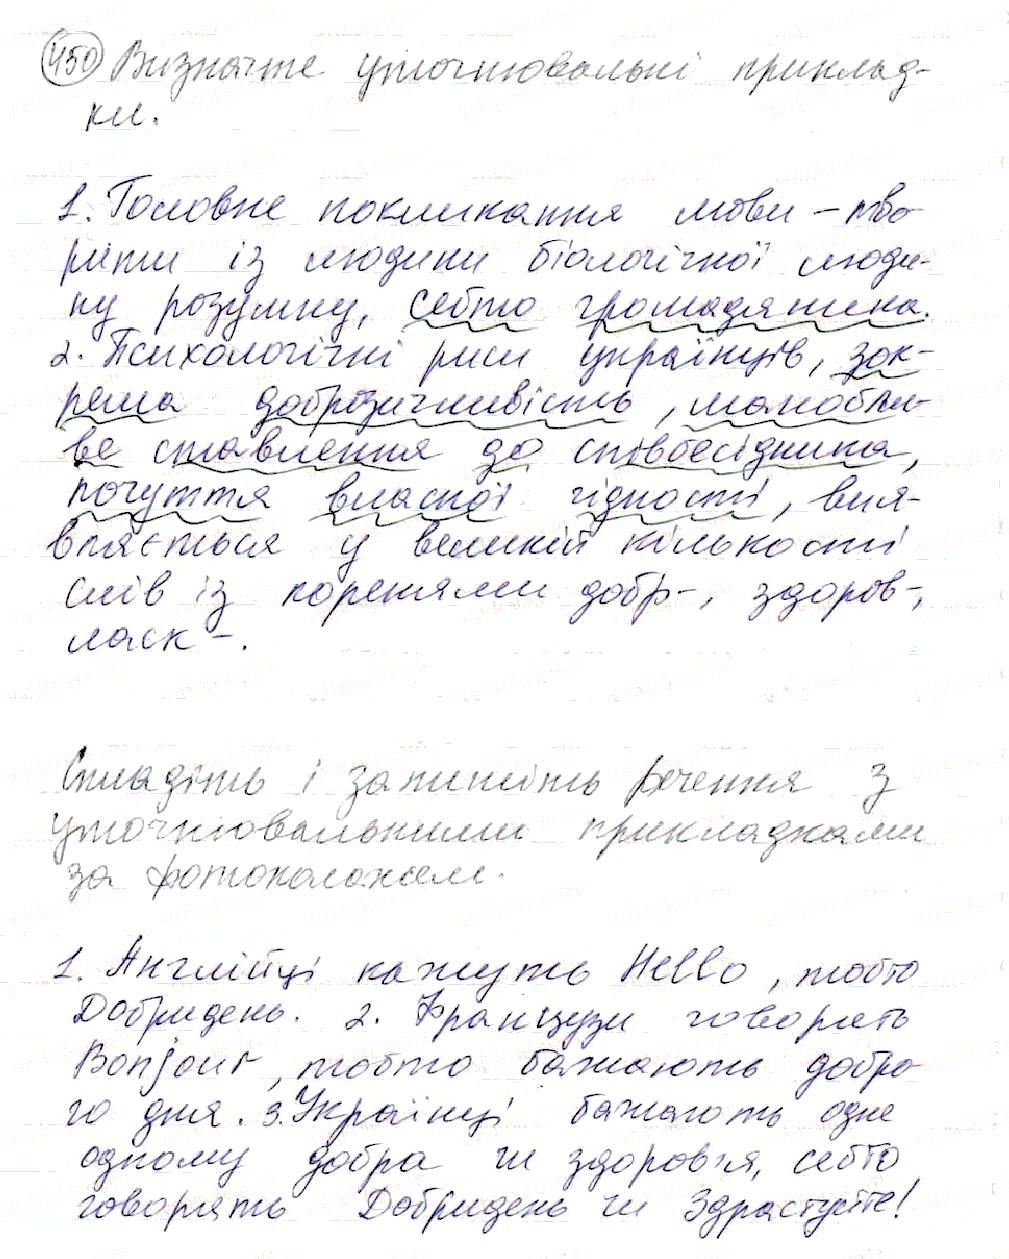 450 Визначте уточнювальні приклад-
ки.
1. Головне покликання мови – тво-
рити із людини біологічної люди-
ну розумну, себто громадянина.
2. Психологічні риси українців, зок-
рема доброзичливість, шанобли-
ве ставлення до співбесідника,
почуття власної гідності, вия-
вляється у великій кількості
слів із коренями добр-, здоров-,
ласк-.
Складіть і запишіть речення з
уточнювальними прикладками
за фотоколажем.
1. Англійці кажуть Hello, тобто
Добридень. 2. Французи говорять
Bonjour, тобто бажають добро-
го дня. 3. Українці бажають одне
одному добра чи здоров'я, себто
говорять Добридень чи Здрастуйте!